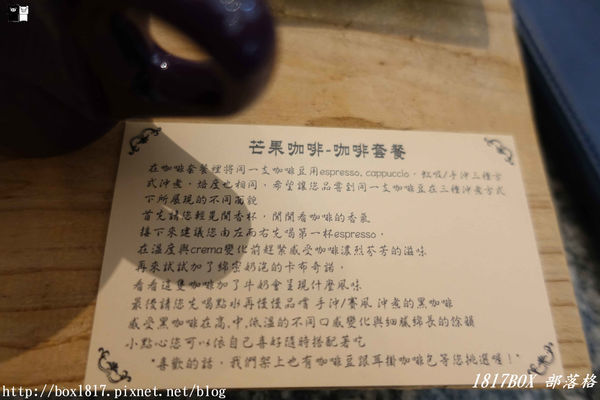 芒果咖啡-咖啡套餐
在咖啡套餐裡將同一支咖啡豆用espresso, cappuccio, 虹吸/手沖三種方
式沖煮，焙度也相同，希望讓您品嘗到同一支咖啡豆在三種沖煮方式
下所展現的不同面貌
首先請您輕晃聞香杯，聞聞看咖啡的香氣
接下來建議您由左而右先喝第一杯espresso，
在溫度與crema變化前趕緊感受咖啡濃烈芬芳的滋味
再來試試加了綿密奶泡的卡布奇諾，
看看這隻咖啡加了牛奶會呈現什麼風味
最後請您先喝點水再慢慢品嚐 手沖/賽風 沖煮的黑咖啡
感受黑咖啡在高.中.低溫的不同口感變化與細膩綿長的餘韻
小點心您可以依自己喜好隨時搭配著吃
"喜歡的話，我們架上也有咖啡豆跟耳掛咖啡包等您挑選喔！"
1817BOX 部落格
http://box1817.pixnet.net/blog